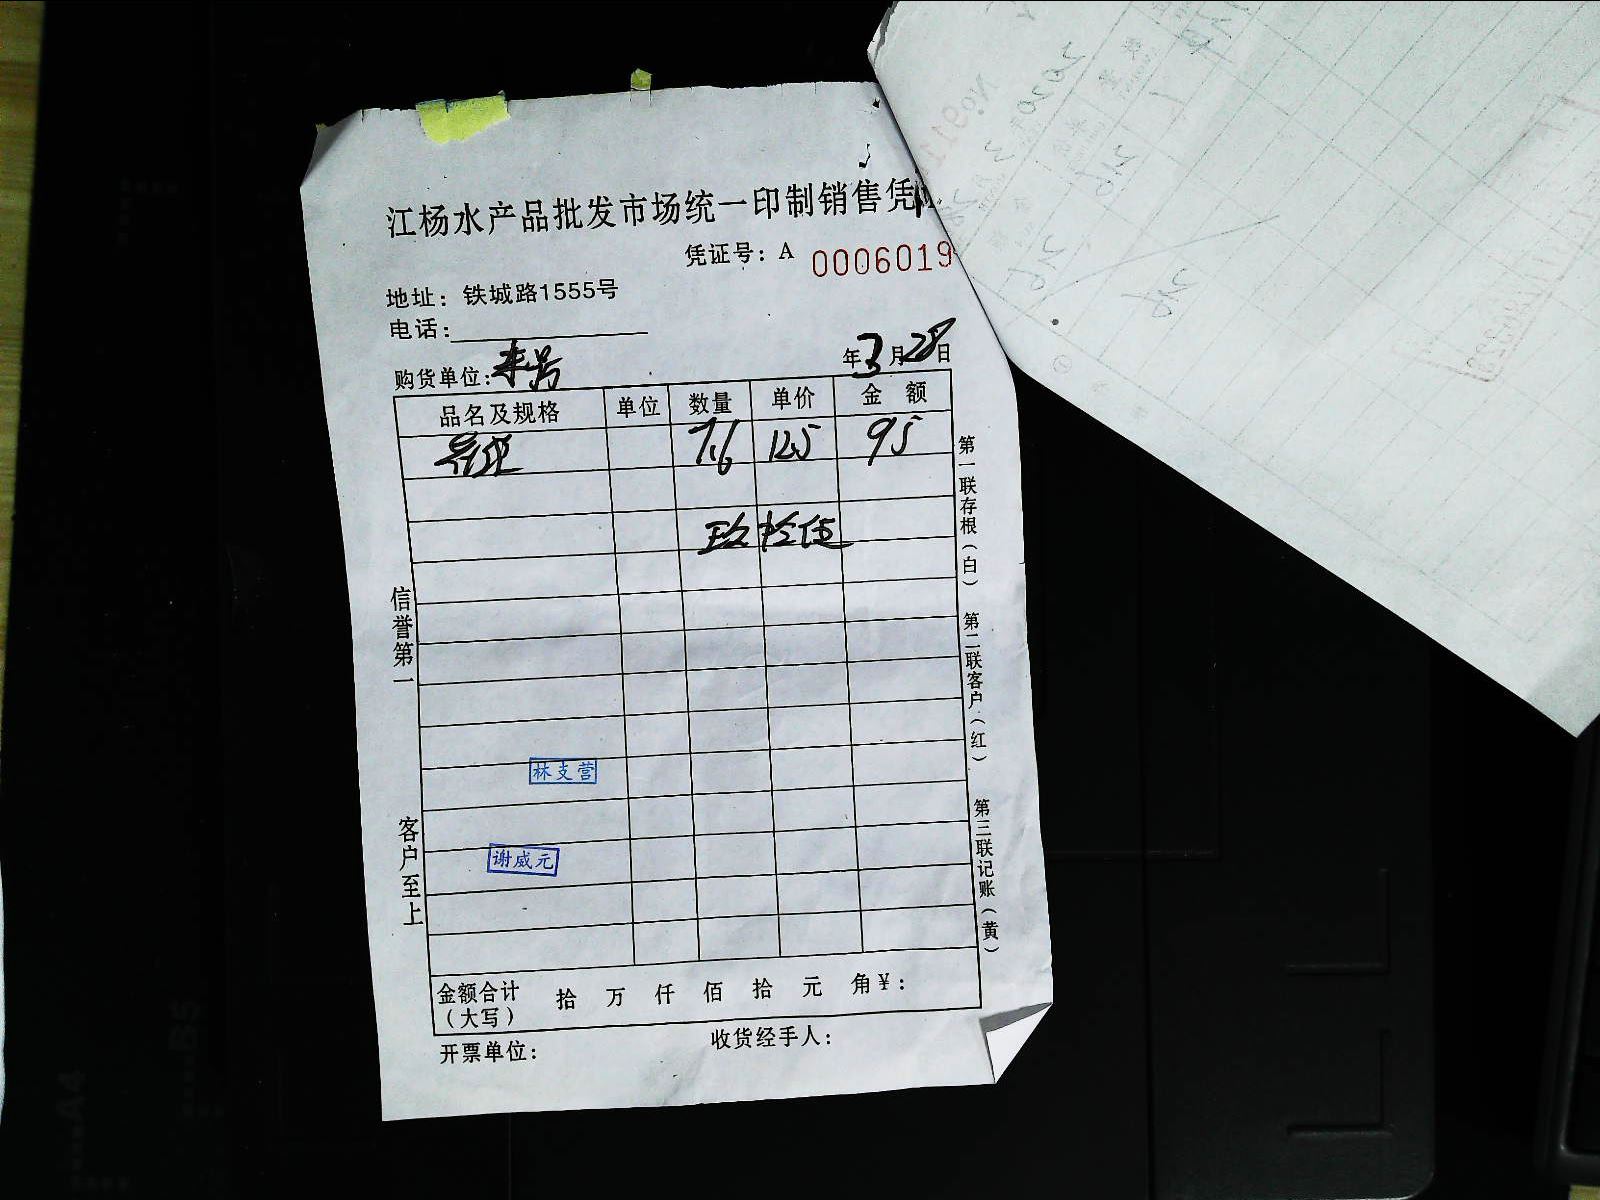 江杨水产品批发市场统一印制销售凭
凭证号：A 0006019
地址：铁城路1555号
电话：
购货单位： 年3月28日
品名及规格 单位 数量 单价 金额
7.6 12.5 95
玖拾伍
信誉第一
客户至上
林支营
谢威元
第一联存根（白）
第二联客户（红）
第三联记账（黄）
金额合计（大写） 拾 万 仟 佰 拾 元 角￥：
开票单位： 收货经手人：